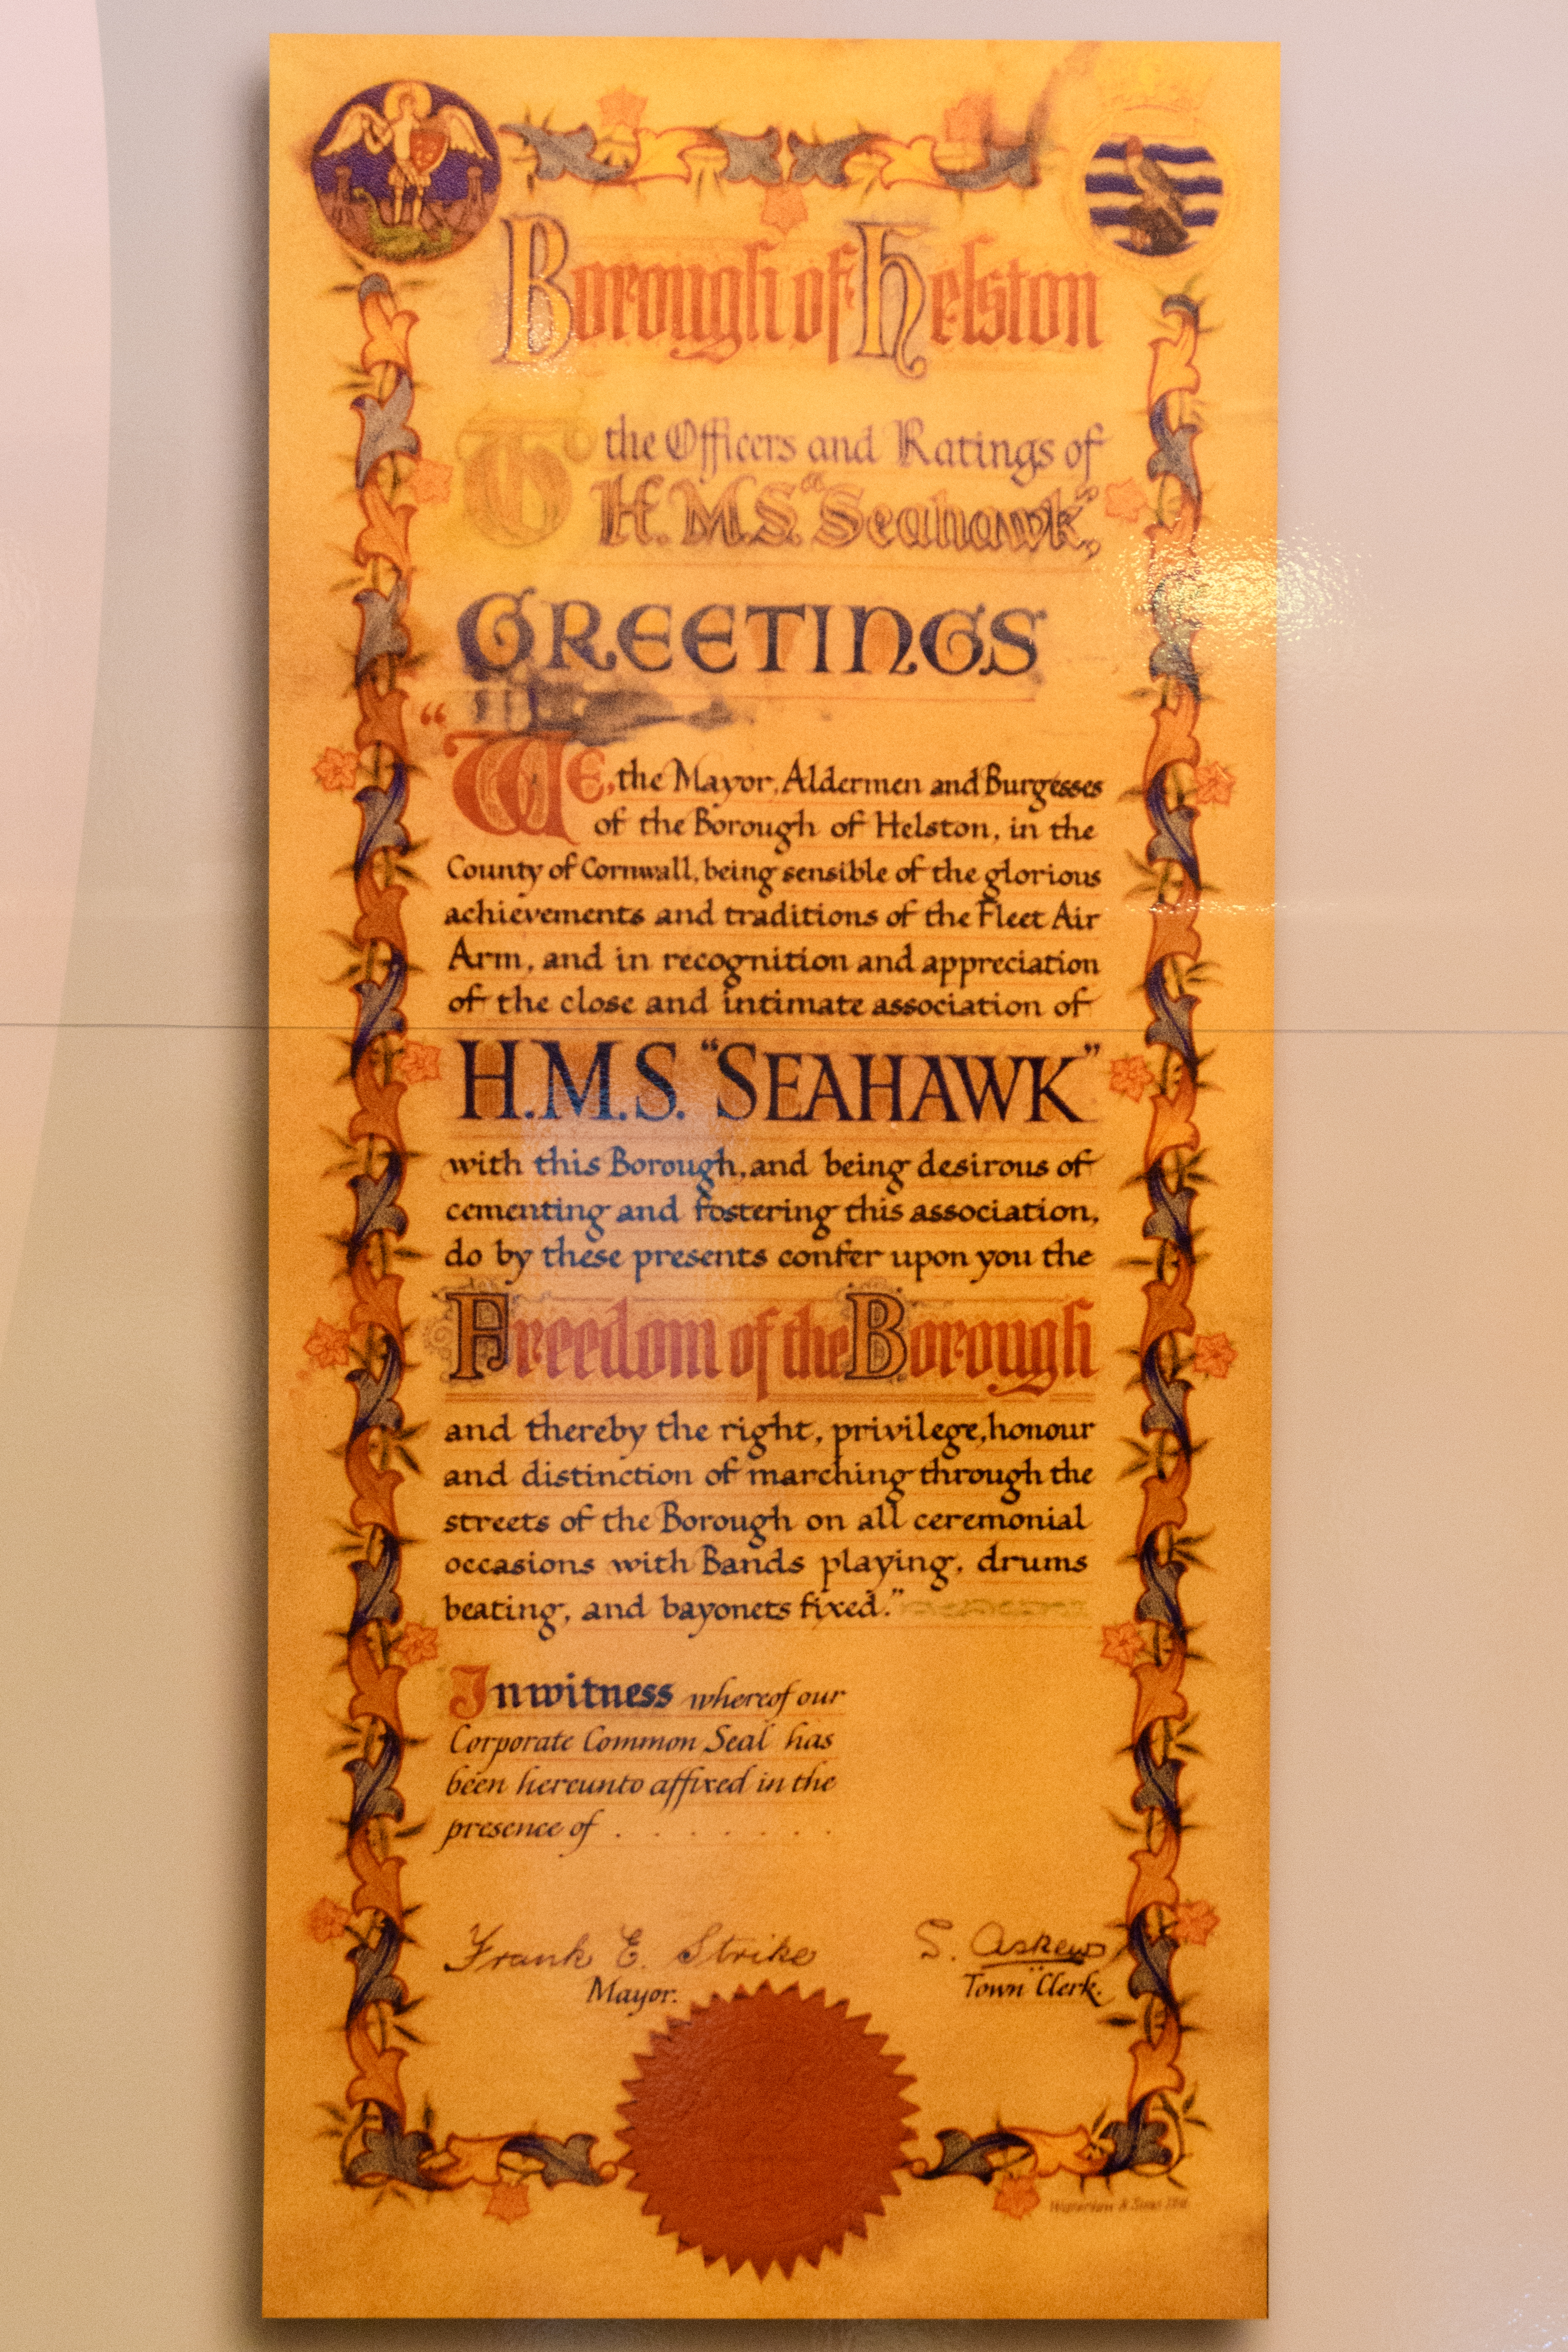 Borough of Helston
To the Officers and Ratings of
H.M.S. "Seahawk",
GREETINGS
"WE, the Mayor, Aldermen and Burgesses
of the Borough of Helston, in the
County of Cornwall, being sensible of the glorious
achievements and traditions of the Fleet Air
Arm, and in recognition and appreciation
of the close and intimate association of
H.M.S. "SEAHAWK"
with this Borough, and being desirous of
cementing and fostering this association,
do by these presents confer upon you the
Freedom of the Borough
and thereby the right, privilege, honour
and distinction of marching through the
streets of the Borough on all ceremonial
occasions with Bands playing, drums
beating, and bayonets fixed."
In witness whereof our
Corporate Common Seal has
been hereunto affixed in the
presence of . . . . . . .
Frank E. Strike S. Askew
Mayor. Town Clerk.
& Sons Ltd